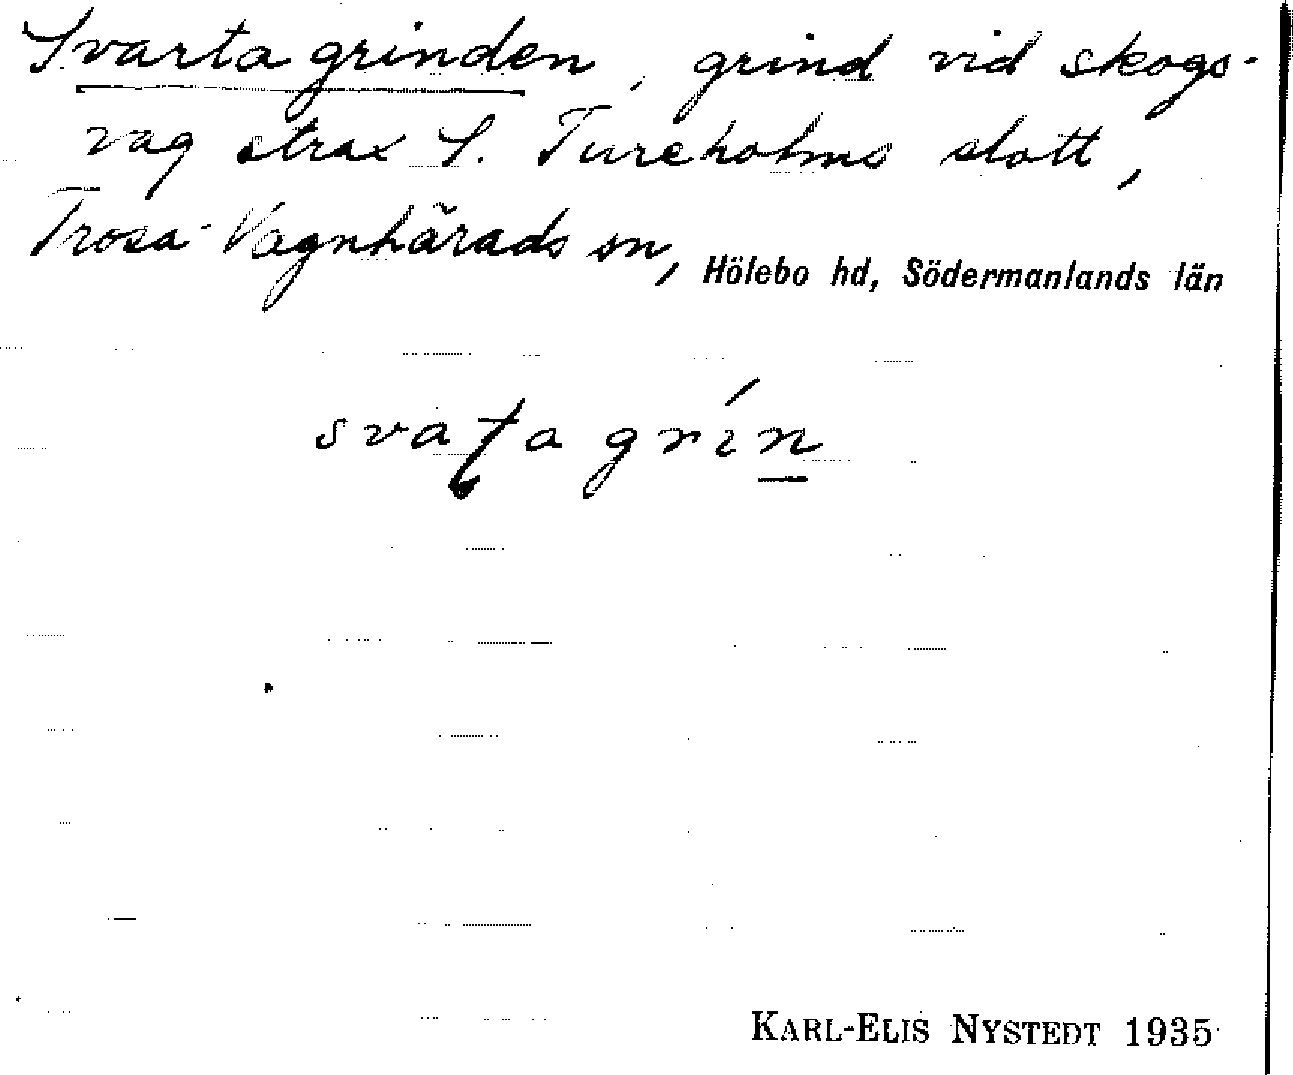 Svarta grinden, grind vid skogs-
väg strax S. Tureholms slott,
Trosa-Vagnhärads sn, Hölebo hd, Södermanlands län
svaʈa grín̲
KARL-ELIS NYSTEDT 1935